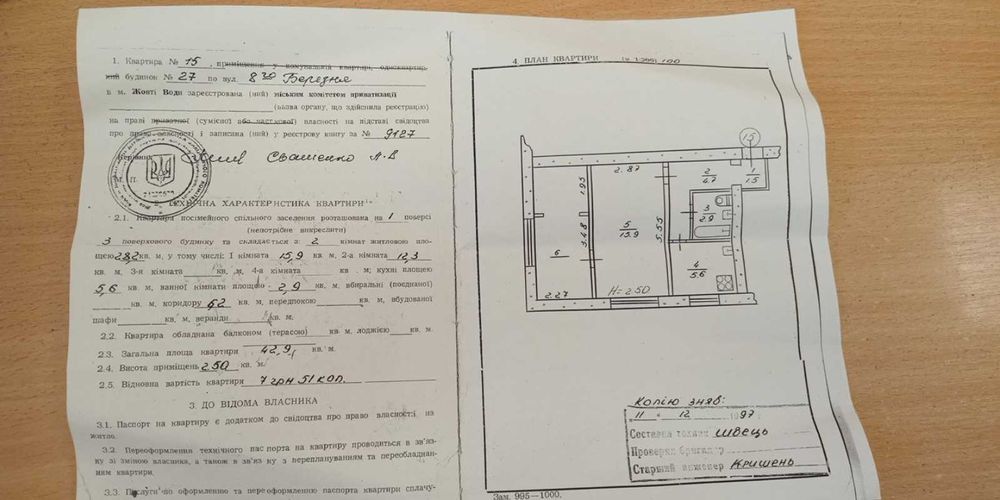 1. Квартира № 15, приміщення у комунальній квартирі, одноквартир-
ний будинок № 27 по вул. 8го Березня
в м. Жовті Води зареєстрована (ний) міським комітетом приватизації
(назва органу, що здійснила реєстрацію)
на праві приватної (сумісної або часткової) власності на підставі свідоцтва
про право власності і записана (ний) у реєстрову книгу за № 9127
Керівник Євашенко А.В
М. П.
2. ТЕХНІЧНА ХАРАКТЕРИСТИКА КВАРТИРИ
2.1. Квартира посімейного спільного заселення розташована на 1 поверсі
(непотрібне викреслити)
3 поверхового будинку та складається з: 2 кімнат житловою пло-
щею 28,2 кв. м, у тому числі: 1 кімната 15,9 кв. м, 2-а кімната 12,3
кв. м, 3-я кімната кв. м, 4-а кімната кв. м; кухні площею
5,6 кв. м, ванної кімнати площею 2,9 кв. м, вбиральні (поєднаної)
кв. м, коридору 6,2 кв. м, передпокою кв. м, вбудованої
шафи кв. м, веранди кв. м.
2.2. Квартира обладнана балконом (терасою) кв. м, лоджією кв. м.
2.3. Загальна площа квартири 42,9 кв. м.
2.4. Висота приміщень 2.50 кв. м.
2.5. Відновна вартість квартири 7 грн 51 коп.
3. ДО ВІДОМА ВЛАСНИКА
3.1. Паспорт на квартиру є додатком до свідоцтва про право власності на
житло.
3.2. Переоформлення технічного паспорта на квартиру проводиться в зв'яз-
ку зі зміною власника, а також в зв'язку з переплануванням та переобладнан-
ням квартири.
3.3. Послуги по оформленню та переоформленню паспорта квартири сплачу-
4. ПЛАН КВАРТИРИ
15
2.87
1.95
2
4.7
1
1.5
3
2.9
5
15.9
3.48
5.55
6
4
5.6
2.27
H=2.50
Копію зняв:
11 " 12 1997
Составил техник Швець
Проверил бригадир
Старший инженер Аришень
Зам. 995—1000.